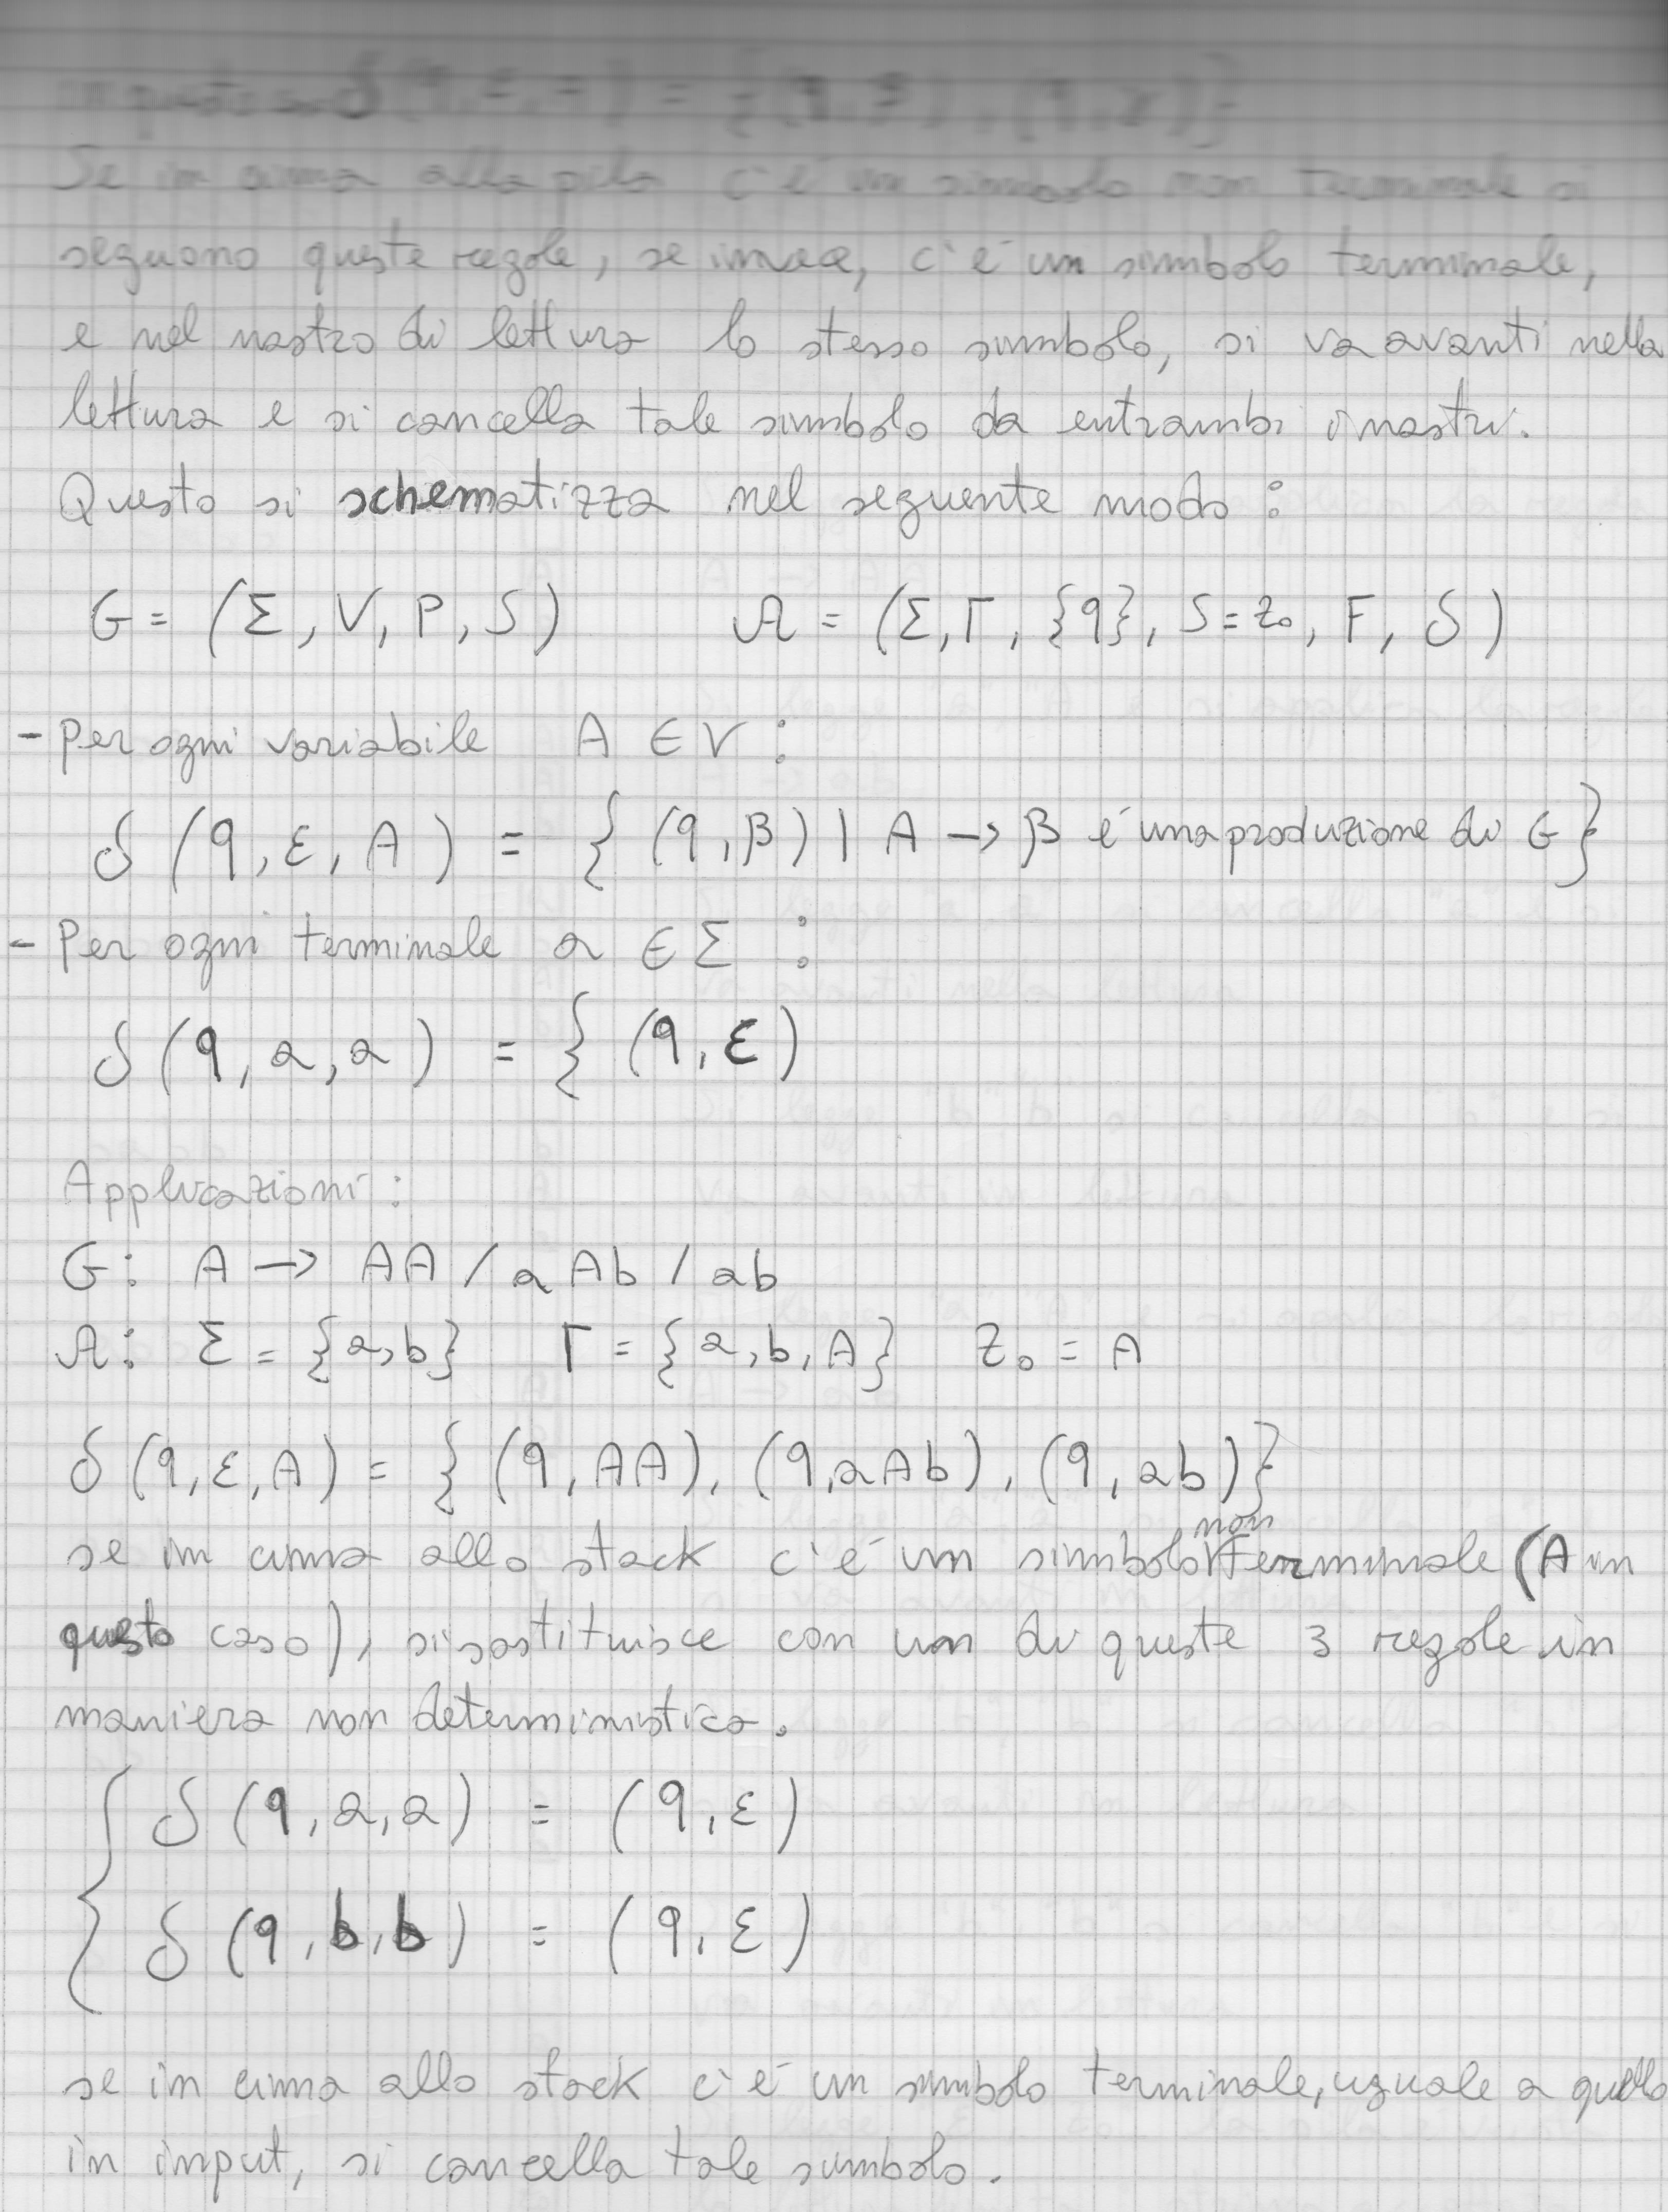 δ(q, ε, ) = {(q, ), (q, )}
Se in cima alla pila c'è un simbolo non terminale si
seguono queste regole, se invece, c'è un simbolo terminale,
e nel nastro di lettura lo stesso simbolo, si va avanti nella
lettura e si cancella tale simbolo da entrambi i nastri.
Questo si schematizza nel seguente modo:
G = (Σ, V, P, S) A = (Σ, Γ, {q}, S = z₀, F, δ)
- Per ogni variabile A ∈ V:
δ (q, ε, A) = { (q, β) | A → β é una produzione di G}
- Per ogni terminale a ∈ Σ :
δ (q, a, a) = { (q, ε)
Applicazioni:
G: A → AA / aAb / ab
A: Σ = {a, b} Γ = {a, b, A} Z₀ = A
δ (q, ε, A) = { (q, AA), (q, aAb), (q, ab)}
se in cima allo stack c'é un simbolo non terminale (A in
questo caso), si sostituisce con un di queste 3 regole in
maniera non deterministica.
{ δ (q, a, a) = (q, ε)
δ (q, b, b) = (q, ε)
se in cima allo stack c'é un simbolo terminale, uguale a quello
in input, si cancella tale simbolo.